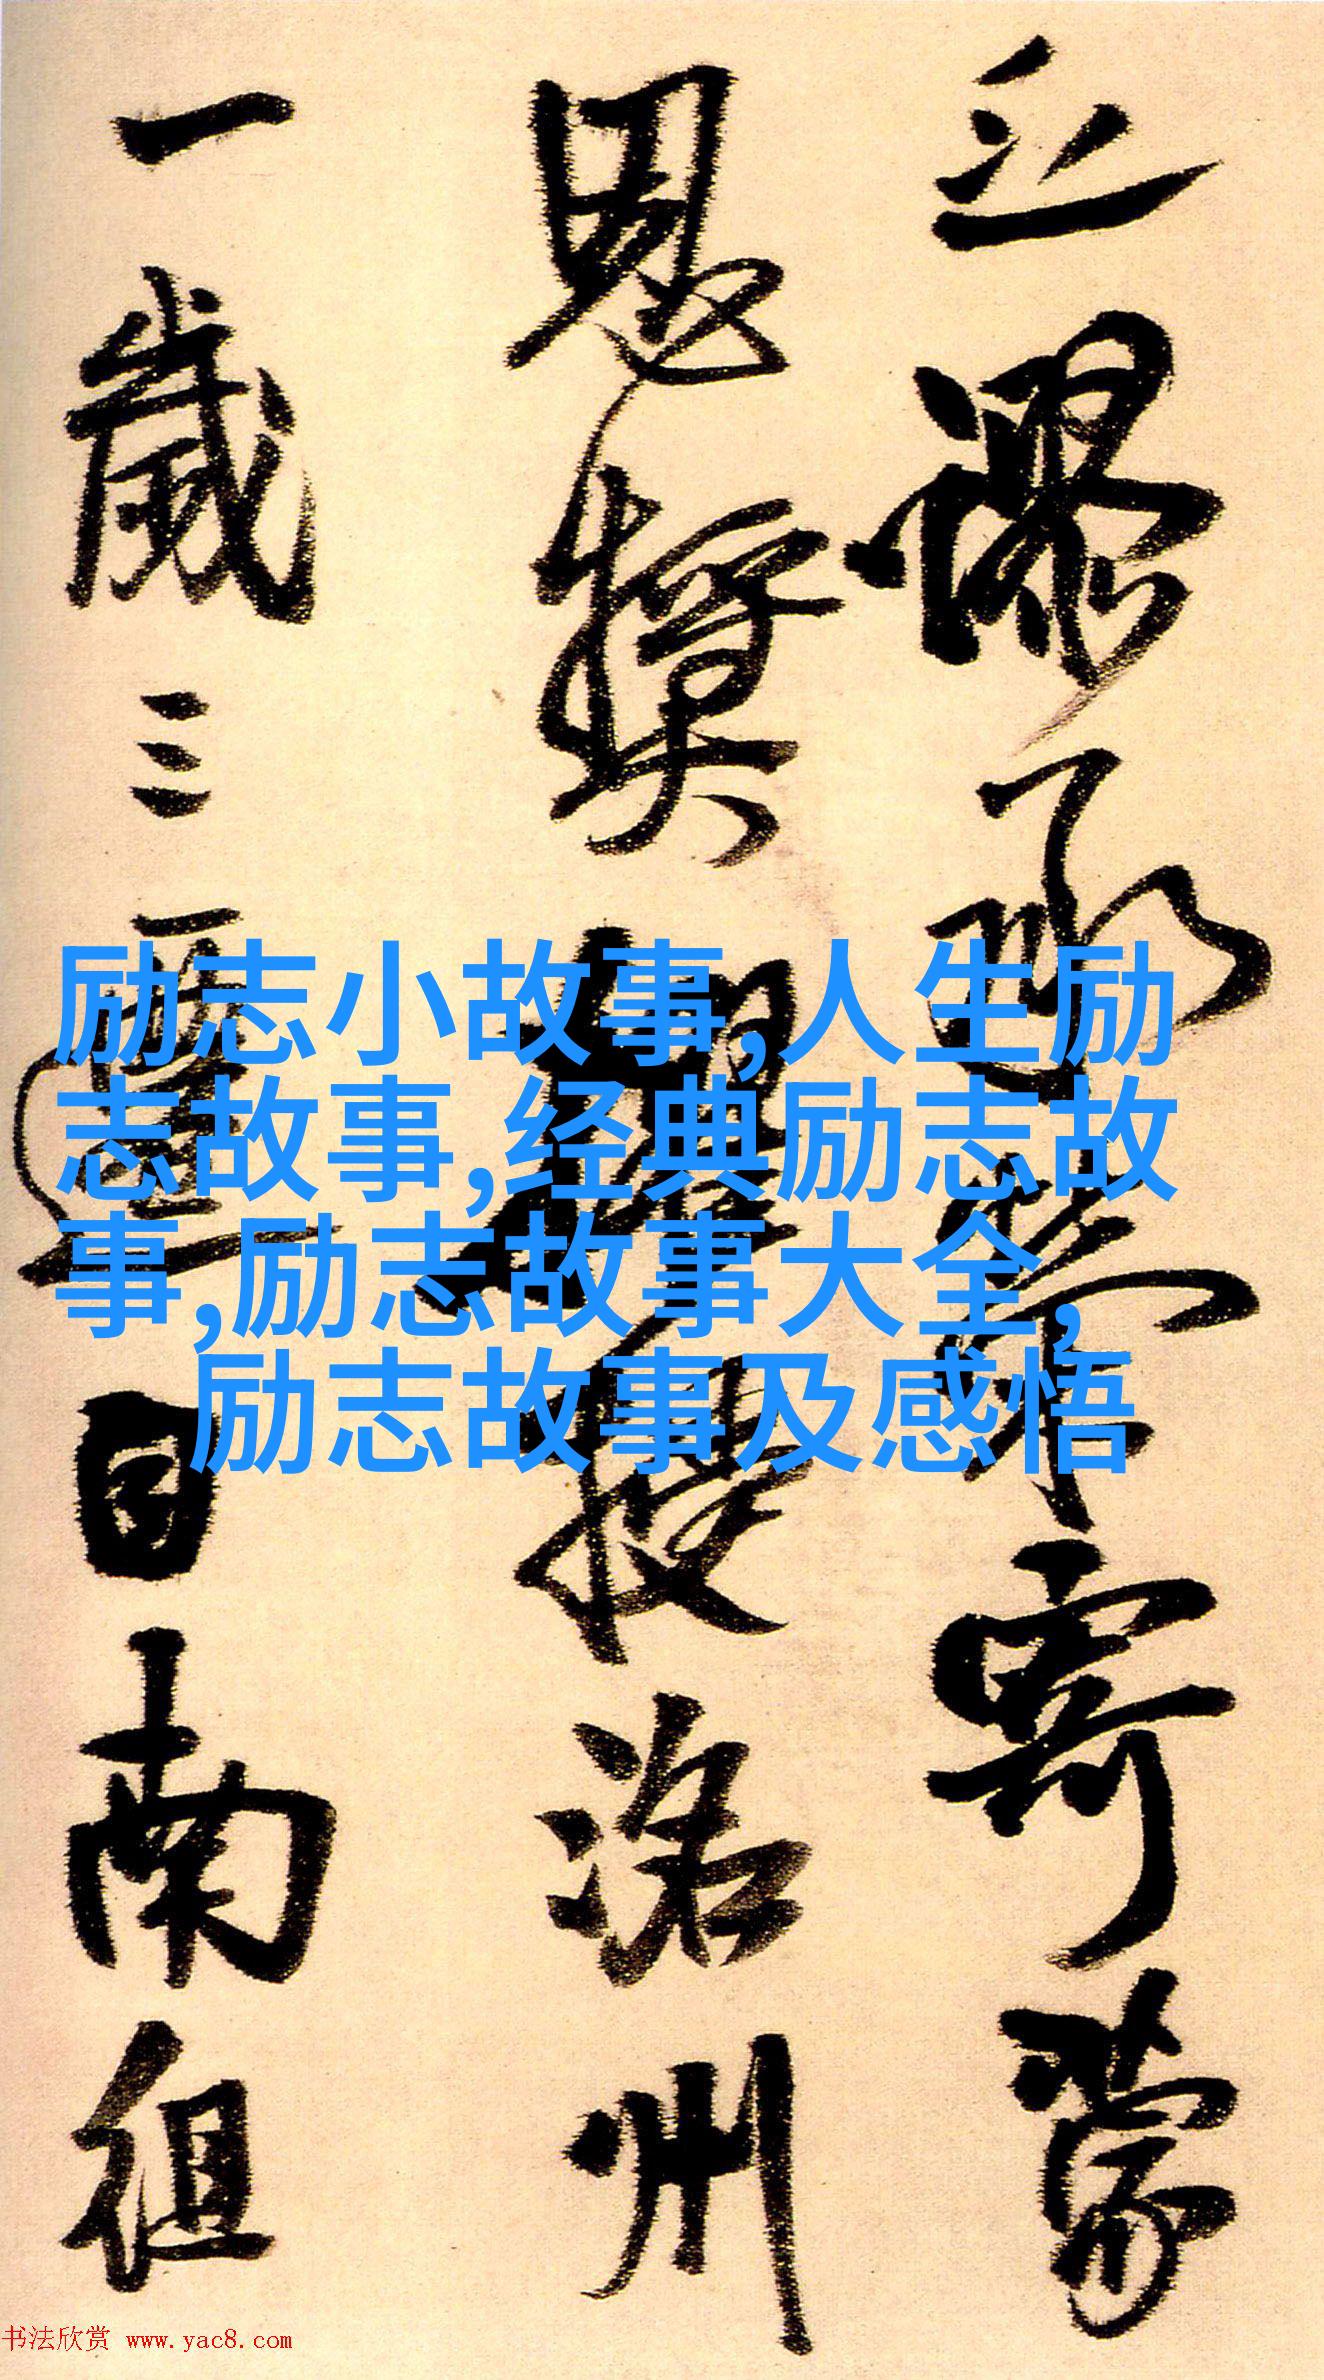 謬承榮寄蒙
恩獎授洺州
一歲三遷自南徂
励志小故事,人生励
志故事,经典励志故
事,励志故事大全,
励志故事及感悟
书法欣赏 www.yac8.com